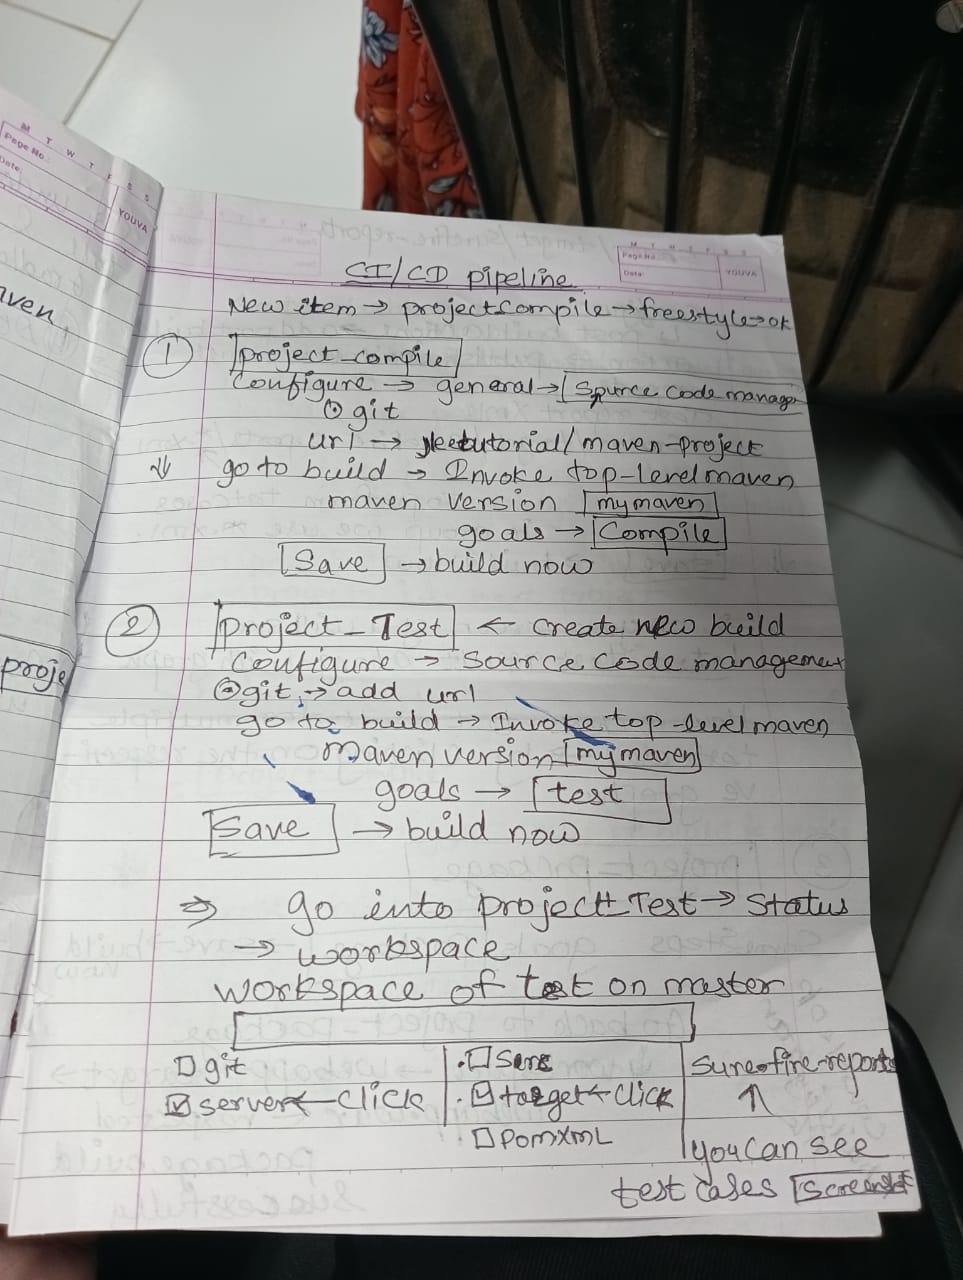 M T W T F S S
Page No.:
Date:
YOUVA
aven
proje
M T W T F S S
Page No.:
Date:
YOUVA
CI/CD pipeline
New item → projectCompile → freestyle → ok
① project-compile
Configure → general → Source code manage
⊙ git
url → /maven-project
⇓ go to build → Invoke top-level maven
maven version mymaven
goals → Compile
Save → build now
② project-Test ← create new build
Configure → Source code management
⊙ git → add url
go to build → Invoke top-level maven
maven version mymaven
goals → test
Save → build now
⇒ go into project-Test → Status
→ workspace
workspace of test on master
☐ git
☑ server ← click
. ☐
. ☑ target ← click
. ☐ pomxmL
Surefire-reports
↑
you can see
test cases